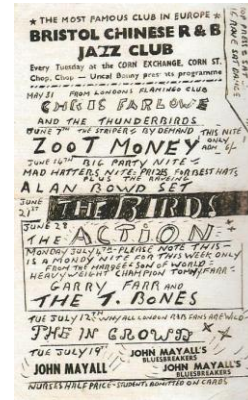 ★ THE MOST FAMOUS CLUB IN EUROPE ★
BRISTOL CHINESE R & B
JAZZ CLUB
Every Tuesday at the CORN EXCHANGE, CORN ST.
Chop, Chop — Uncal Bonny presents programme
MAY 31 FROM LONDONS FLAMINGO CLUB
CHRIS FARLOWE
AND THE THUNDERBIRDS
JUNE 7TH THE STRIPERS BY DEMAND THIS NITE
ZOOT MONEY ONLY
ADM 6/-
JUNE 14TH BIG PARTY NITE
MAD HATTERS NITE: PRIZES FOR BEST HATS
PLUS THE RAVEING
ALAN BOWD SET
JUNE 21ST THE BIRDS
JUNE 28
THE ACTION
MONDAY JULY 4TH - PLEASE NOTE THIS
IS A MONDY NITE FOR THIS WEEK ONLY
FROM THE MARQUEE SON OF WORLD
HEAVYWEIGHT CHAMPION TOMMY FARR
GARRY FARR AND
THE T. BONES
TUE JULY 12TH WHY ALL LONDON R&B FANS ARE WILD
THE IN CROWD
TUE JULY 19TH JOHN MAYALL'S
BLUESBREAKERS
JOHN MAYALL JOHN MAYALL'S
BLUESBREAKERS
NURSES HALF PRICE - STUDENTS ADMITTED ON CARDS